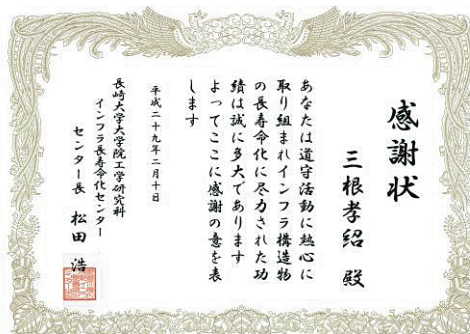 感謝状
三根孝紹 殿
あなたは道守活動に熱心に
取り組まれインフラ構造物
の長寿命化に尽力された功
績は誠に多大であります
よってここに感謝の意を表
します
平成二十九年二月十日
長崎大学大学院工学研究科
インフラ長寿命化センター
センター長 松田 浩